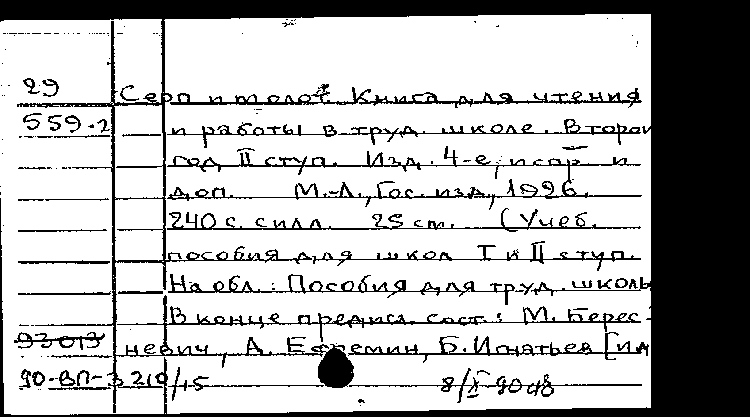 29 Серп и молот. Книга для чтения
559.2 и работы в труд. школе. Второй
год II ступ. Изд. 4-е, испр. и
доп. М.-Л., Гос. изд., 1926.
240 с. с илл. 25 cm. (Учеб.
пособия для школ I и II ступ.
На обл.: Пособия для труд. школы
В конце предисл. сост.: М. Берес-
93013 невич, А. Ефремин, Б. Игнатьев [и
90-ВП-3210/15 8/X-90